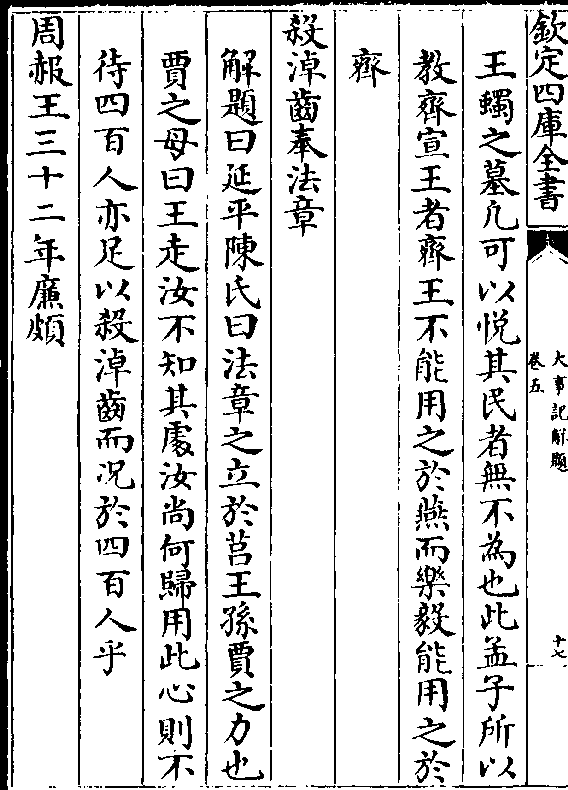 欽定四庫全書
大事記解題
卷五
十七
王蠋之墓凡可以悅其民者無不為也此孟子所以
教齊宣王者齊王不能用之於燕而樂毅能用之於
齊
殺淖齒奉法章
解題曰延平陳氏曰法章之立於莒王孫賈之力也
賈之母曰王走汝不知其處汝尚何歸用此心則不
待四百人亦足以殺淖齒而况於四百人乎
周赧王三十二年廉頗